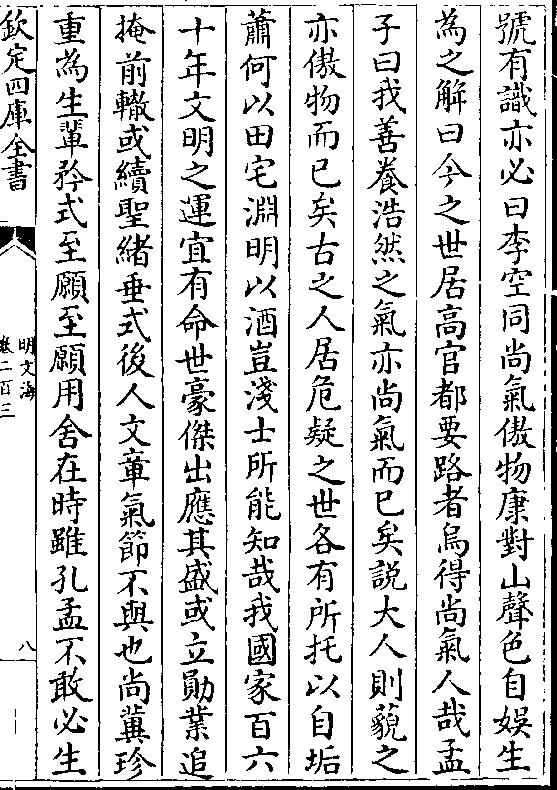 號有識亦必曰李空同尚氣傲物康對山聲色自娛生
為之解曰今之世居高官都要路者烏得尚氣人哉孟
子曰我善養浩然之氣亦尚氣而已矣說大人則藐之
亦傲物而已矣古之人居危疑之世各有所托以自垢
蕭何以田宅淵明以酒豈淺士所能知哉我國家百六
十年文明之運宜有命世豪傑出應其盛或立勛業追
掩前轍或續聖緒垂式後人文章氣節不與也尚冀珍
重為生輩矜式至願至願用舍在時雖孔孟不敢必生
欽定四庫全書
明文海
卷二百三
八